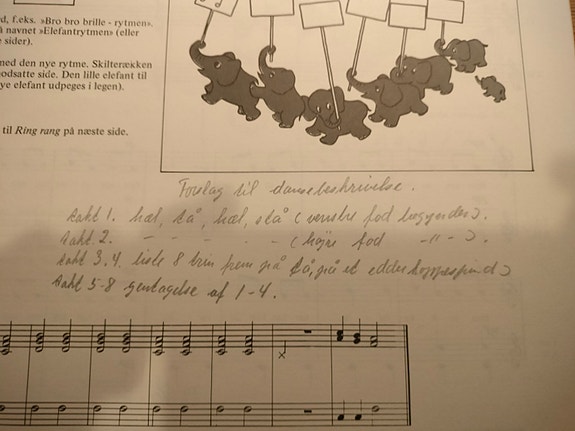 d, f.eks. »Bro bro brille - rytmen«.
navnet »Elefantrytmen« (eller
sider).
med den nye rytme. Skilterækken
odsatte side. Den lille elefant til
ye elefant udpeges i legen).
til Ring rang på næste side.
Forslag til dansebeskrivelse.
takt 1. hæl, tå, hæl, stå (venstre fod begynder).
takt 2. - - - - - (højre fod -"- ).
takt 3.4. liste 8 trin frem på tå, på et edderkoppespind)
takt 5-8 gentagelse af 1-4.